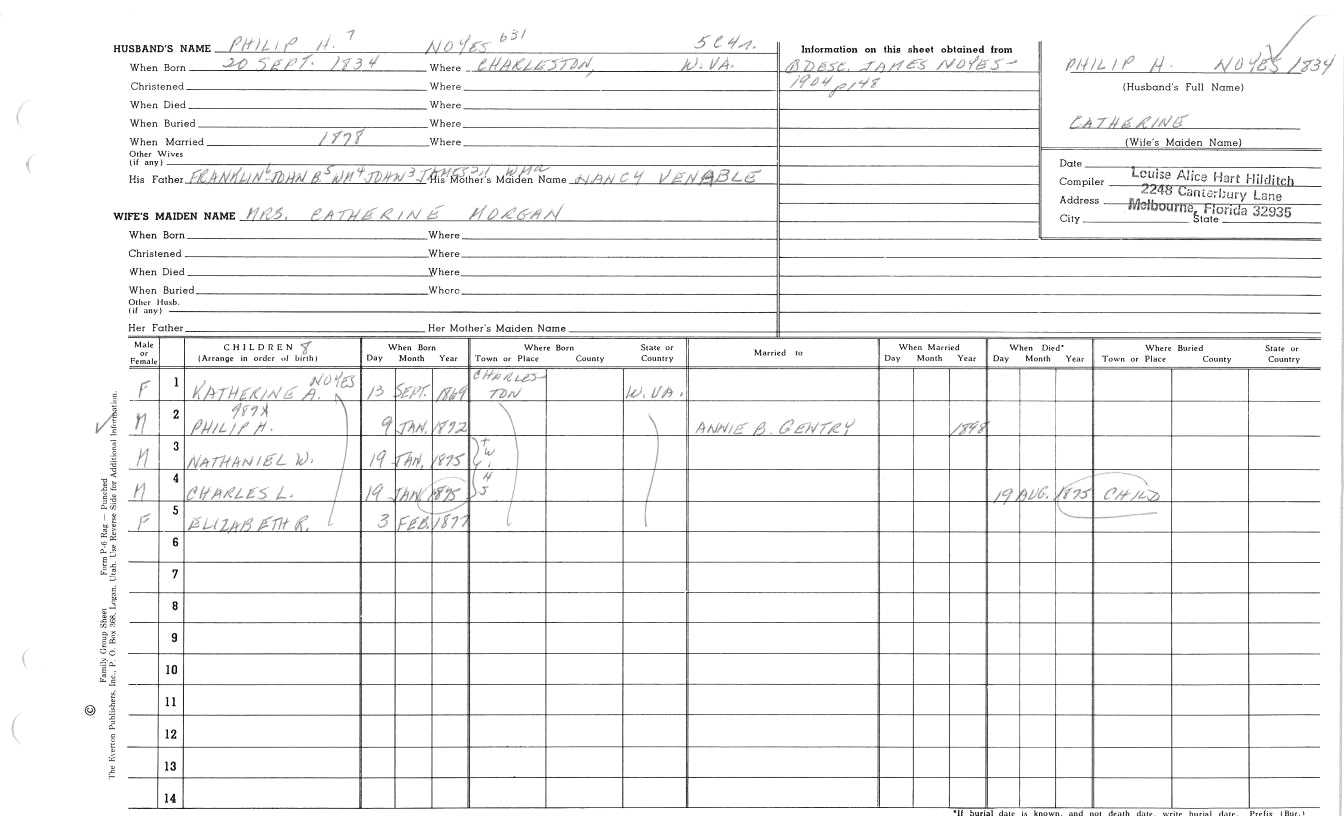 HUSBAND'S NAME PHILIP H. 7 NOYES 631
When Born 20 SEPT. 1834 Where CHARLESTON, W.VA.
Christened Where
When Died Where
When Buried Where
When Married 1878 Where
Other Wives
(if any)
His Father FRANKLIN 6 JOHN B. 5 WM 4 JOHN 3 JAMES His Mother's Maiden Name NANCY VENABLE
WIFE'S MAIDEN NAME MRS. CATHERINE MORGAN
When Born Where
Christened Where
When Died Where
When Buried Where
Other Husb.
(if any)
Her Father Her Mother's Maiden Name
Information on this sheet obtained from
DESC. JAMES NOYES-
1904 p148
PHILIP H. NOYES 1834
(Husband's Full Name)
CATHERINE
(Wife's Maiden Name)
Date
Compiler Louise Alice Hart Hilditch
Address 2248 Canterbury Lane
Melbourne, Florida 32935
City State
Male or Female CHILDREN 8 (Arrange in order of birth) When Born Day Month Year Where Born Town or Place County State or Country Married to When Married Day Month Year When Died* Day Month Year Where Buried Town or Place County State or Country
F 1 KATHERINE A. NOYES 13 SEPT. 1869 CHARLESTON W.VA.
M 2 PHILIP H. 9 JAN. 1872 ANNIE B. GENTRY 1898
M 3 NATHANIEL W. 19 JAN. 1875 TWINS
M 4 CHARLES L. 19 JAN 1875 19 AUG. 1875 CHILD
F 5 ELIZABETH R. 3 FEB. 1877
6
7
8
9
10
11
12
13
14
© Family Group Sheet Form P-6 Rag — Punched
The Everton Publishers, Inc., P. O. Box 368, Logan, Utah. Use Reverse Side for Additional Information.
*If burial date is known, and not death date, write burial date. Prefix (Bur.)